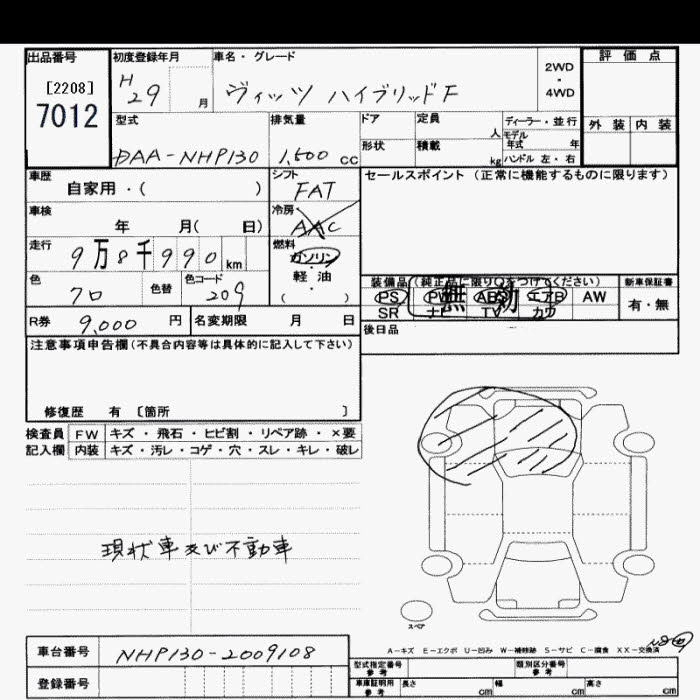 出品番号 初度登録年月 車名・グレード 2WD・4WD 評価点
[2208]
7012
H29 月 ヴィッツ ハイブリッドF
型式 排気量 ドア 定員 人 ディーラー・並行 外装 内装
モデル年式 年
DAA-NHP130 1,500 cc 形状 積載 kg ハンドル 左・右
車歴 自家用・( ) シフト FAT セールスポイント (正常に機能するものに限ります)
車検 年 月( 日) 冷房 AAC
走行 9万8千990km 燃料 ガソリン・軽油・( )
色 クロ 色替 色コード 209
装備品(純正品に限り○をつけてください) 新車保証書
PS PW ABS エアB AW 有・無
無効
SR ナビ TV カワ
R券 9,000 円 名変期限 月 日
後日品
注意事項申告欄(不具合内容等は具体的に記入して下さい)
修復歴 有 [箇所 ]
検査員 FW キズ・飛石・ヒビ割・リペア跡・×要
記入欄 内装 キズ・汚レ・コゲ・穴・スレ・キレ・破レ
現状車及び不動車
スペア
A-キズ E-エクボ U-凹み W-補修跡 S-サビ C-腐食 XX-交換済
車台番号 NHP130-2009108
登録番号
型式指定番号 参考 類別区分番号 参考
車庫証明用 参考 長さ cm 幅 cm 高さ cm